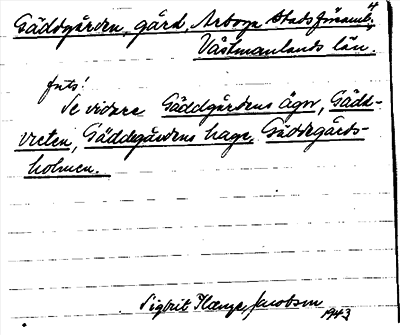 Gäddgården, gård, Arboga Stadsförsaml.,
Västmanlands län.
futs!
Se vidare Gäddgårdens ägor, Gädd-
vreten, Gäddegårdens hage, Gäddegårds-
holmen.
Sigbrit Jacobson
1943